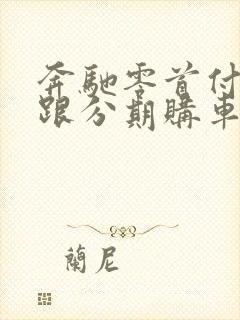 奔馳零首付
跟分期購車
蘭尼